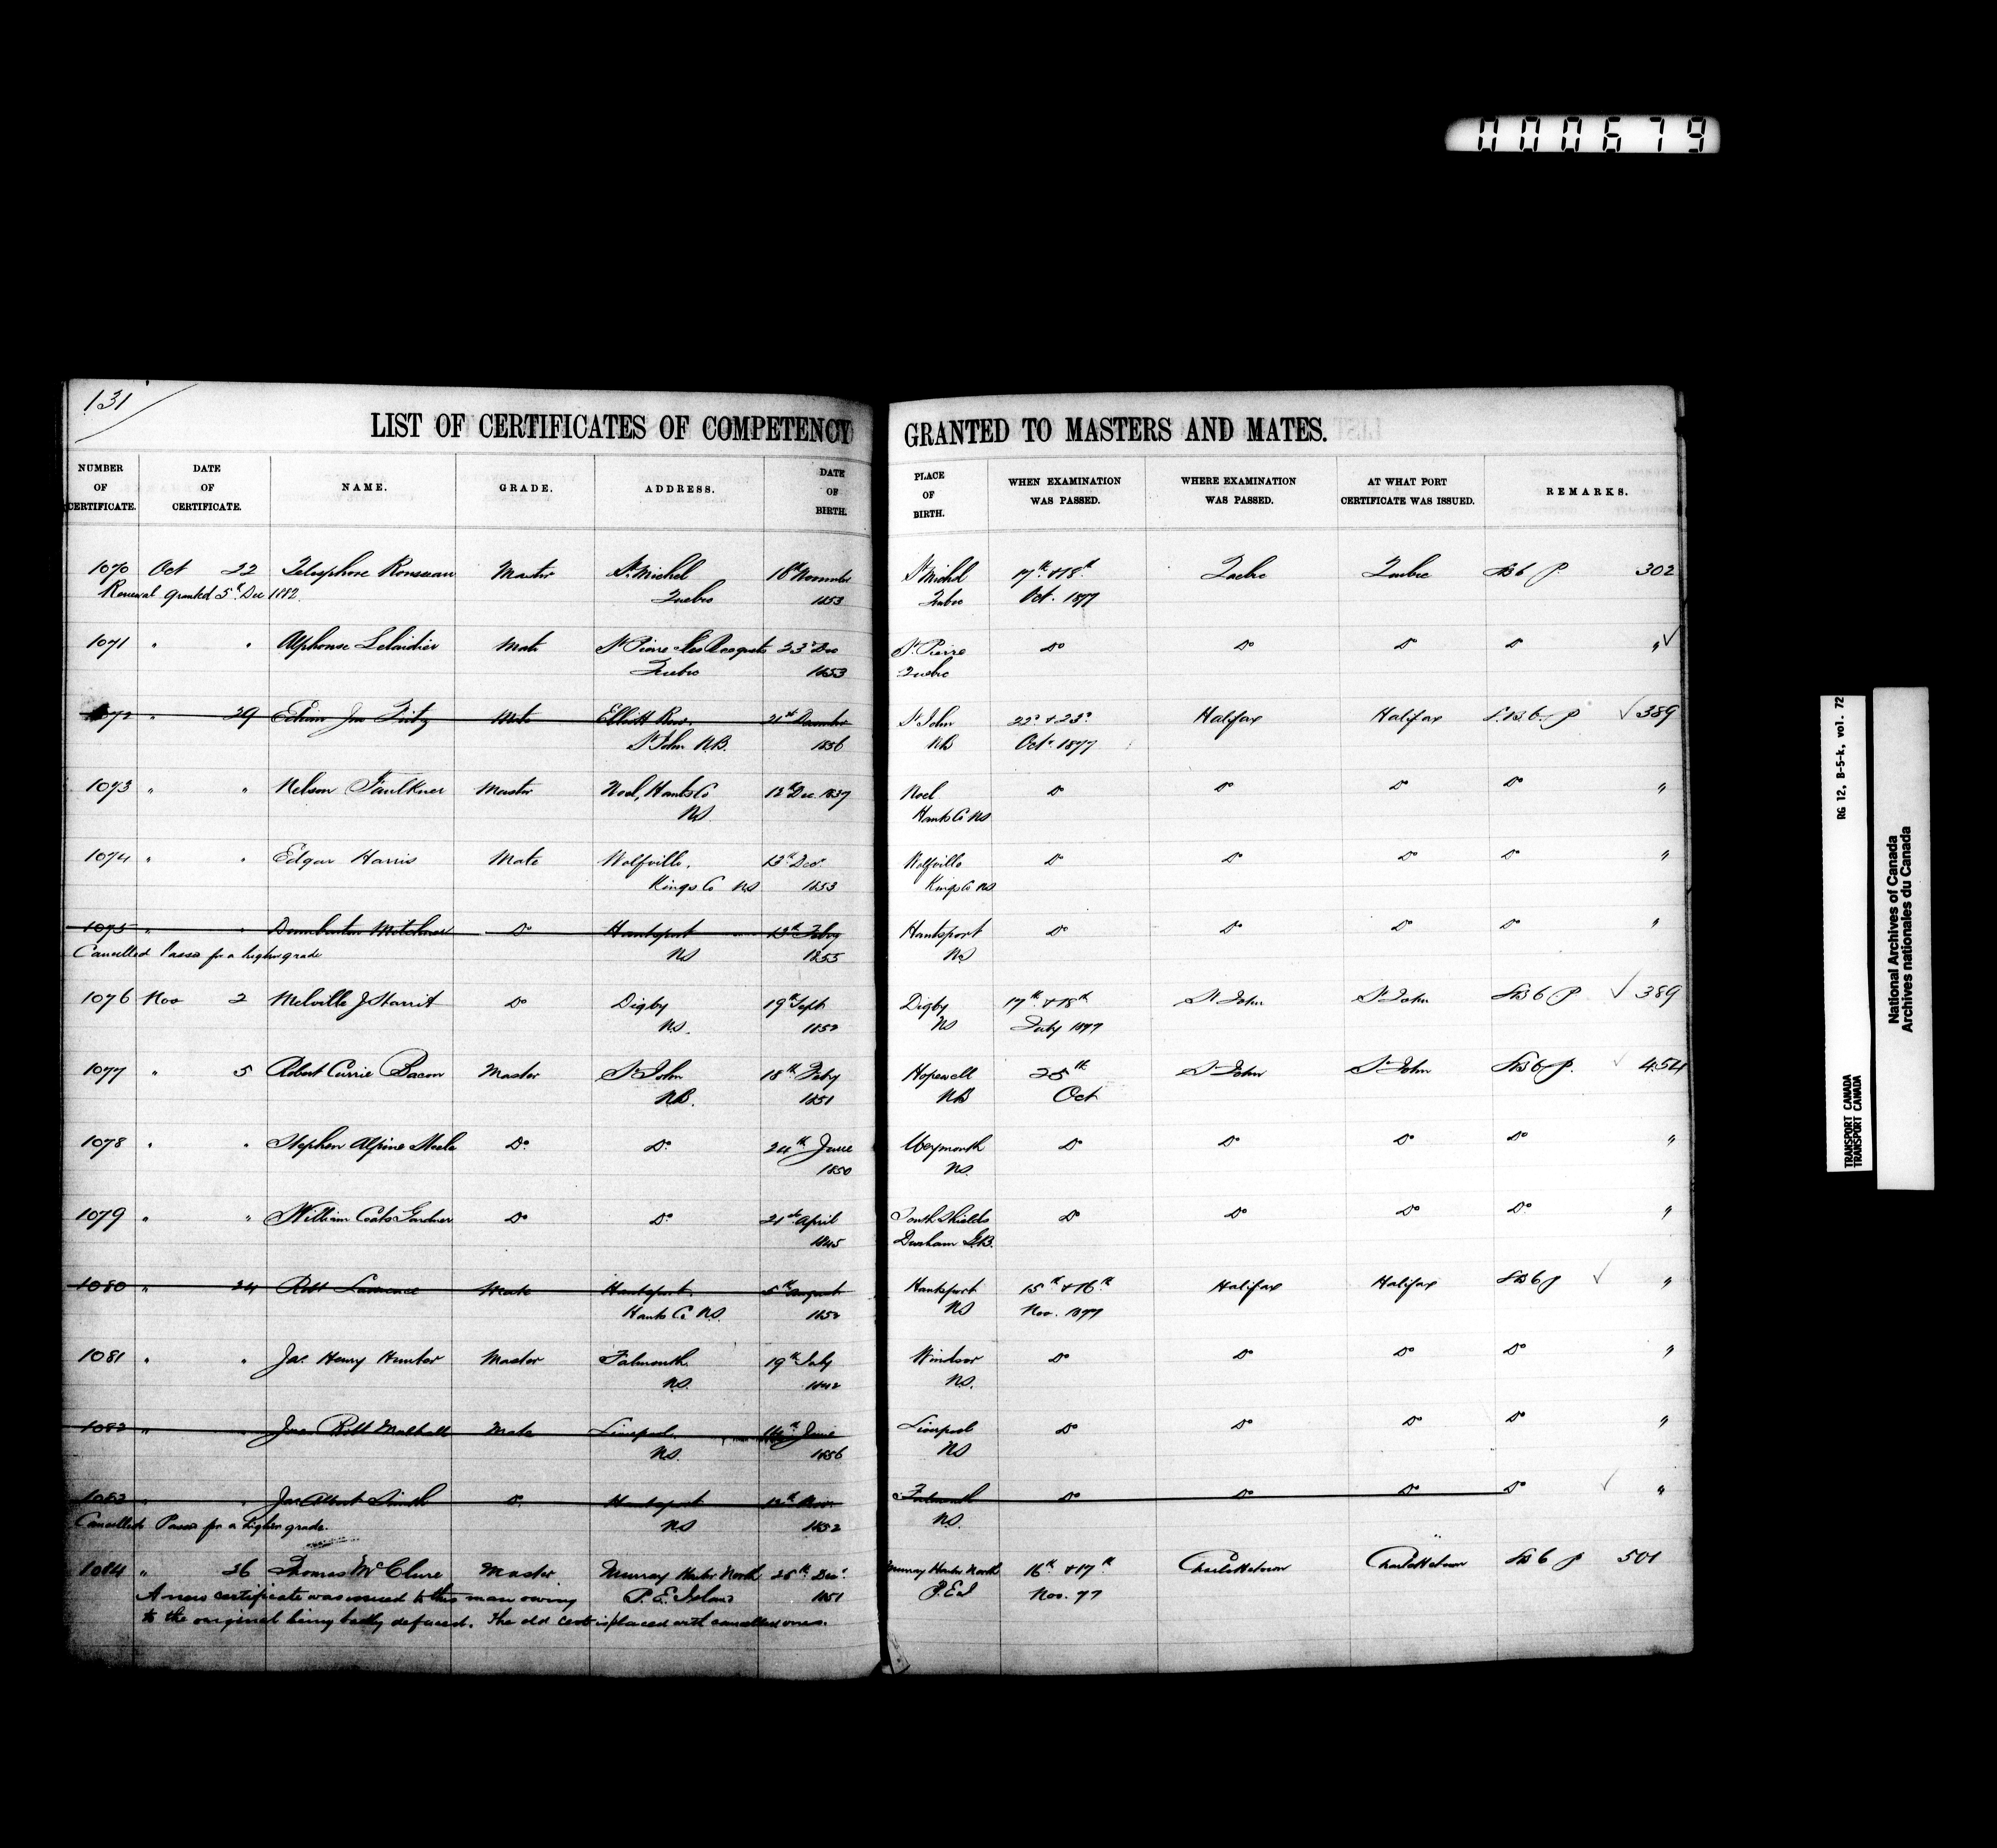 000679
131
LIST OF CERTIFICATES OF COMPETENCY GRANTED TO MASTERS AND MATES.
NUMBER OF CERTIFICATE. DATE OF CERTIFICATE. NAME. GRADE. ADDRESS. DATE OF BIRTH. PLACE OF BIRTH. WHEN EXAMINATION WAS PASSED. WHERE EXAMINATION WAS PASSED. AT WHAT PORT CERTIFICATE WAS ISSUED. REMARKS.
1070 Oct 22 Telesphore Rousseau Master St. Michel 18th November St Michel 17th & 18th Quebec Quebec SB6 P. 302
Renewal granted 5th Dec 1882. Quebec 1853 Quebec Oct. 1877
1071 " " Alphonse Mate St Pierre les Becquets 23d Dec St. Pierre Do Do Do Do "
Quebec 1853 Quebec
1072 " 29 Edwin Jno Mate Elliott Row. 21st December St John 22d & 23d Halifax Halifax S.B.6. P 389
St John N.B. 1856 NB Oct. 1877
1073 " " Nelson Faulkner Master Noel, Hants Co 12th Dec 1837 Noel Do Do Do Do "
NS Hants Co NS
1074 " " Edgar Harris Mate Wolfville. 13th Dec. Wolfville Do Do Do Do "
Kings Co NS 1853 Kings Co NS
1075 " " Do Hantsport 13th Feby Hantsport Do Do Do Do "
Cancelled Passed for a higher grade NS 1855 NS
1076 Nov 2 Melville J Harrit Do Digby 19th Sept Digby 17th & 18th St John St John SB6 P 389
NS. 1852 NS July 1877
1077 " 5 Robert Currie Bacon Master St John 18th Feby Hopewell 25th St John St John SB6 P. 454
NB. 1851 NB Oct
1078 " " Stephen Alpine Steele Do. Do. 24th June Weymouth Do Do Do Do "
1850 NS.
1079 " " William Coats Gardner Do Do. 21st April South Shields Do Do Do Do "
1845 Durham G.B.
1080 " 24 Robt Lawrence Mate Hantsport. 5th August Hantsport 15th & 16th Halifax Halifax SB6 P "
Hants Co N.S. 1852 NS Nov. 1877
1081 " " Jas. Henry Hunter Master Falmouth. 19th July Windsor Do Do Do Do "
NS. 1842 NS.
1082 " " Robt Mate Liverpool. 14th June Liverpool Do Do Do Do "
NS. 1856 NS
1083 " " Jas Albert Smith Do Hantsport 12th Nov. Falmouth Do Do Do Do "
Cancelled Passed for a higher grade. NS 1852 NS.
1084 " 26 Thomas McClure Master Murray Harbor North 25th Dec. Murray Harbor North 16th & 17th Charlottetown Charlottetown SB6 P 501
A new certificate was issued to this man owing P.E. Island 1851 P.E.I Nov. 77
to the original being badly defaced. The old Cert is placed with cancelled ones.
RG 12, B-5-k, vol. 72
TRANSPORT CANADA
TRANSPORT CANADA
National Archives of Canada
Archives nationales du Canada